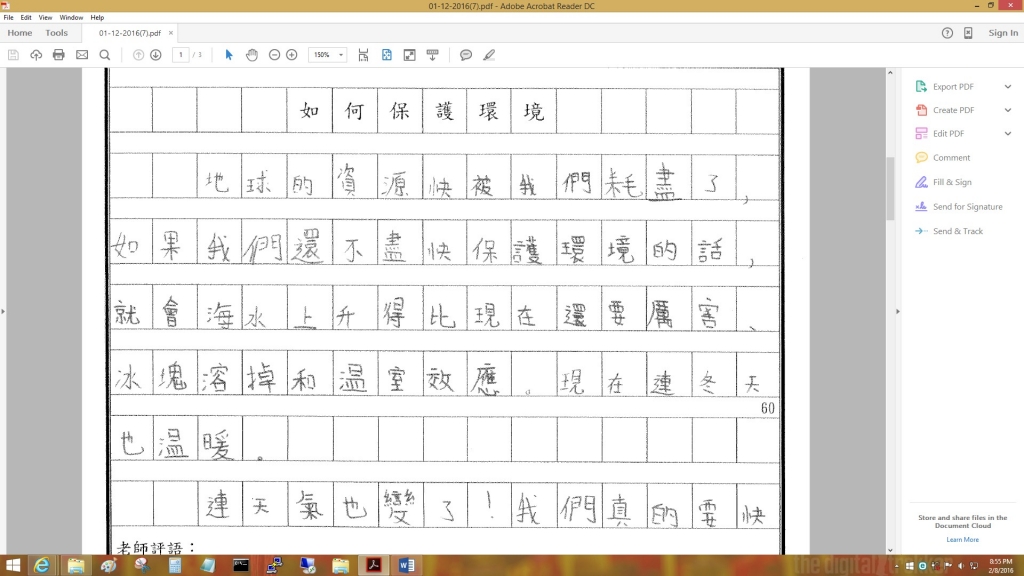 01-12-2016(7).pdf - Adobe Acrobat Reader DC
File Edit View Window Help
Home Tools 01-12-2016(7).pdf × Sign In
1 / 3 150%
如何保護環境
地球的資源快被我們耗盡了,
如果我們還不盡快保護環境的話,
就會海水上升得比現在還要厲害、
冰塊溶掉和溫室效應。現在連冬天
60
也溫暖。
連天氣也變了!我們真的要快
老師評語:
Export PDF
Create PDF
Edit PDF
Comment
Fill & Sign
Send for Signature
Send & Track
Store and share files in the
Document Cloud
Learn More
8:55 PM
2/8/2016